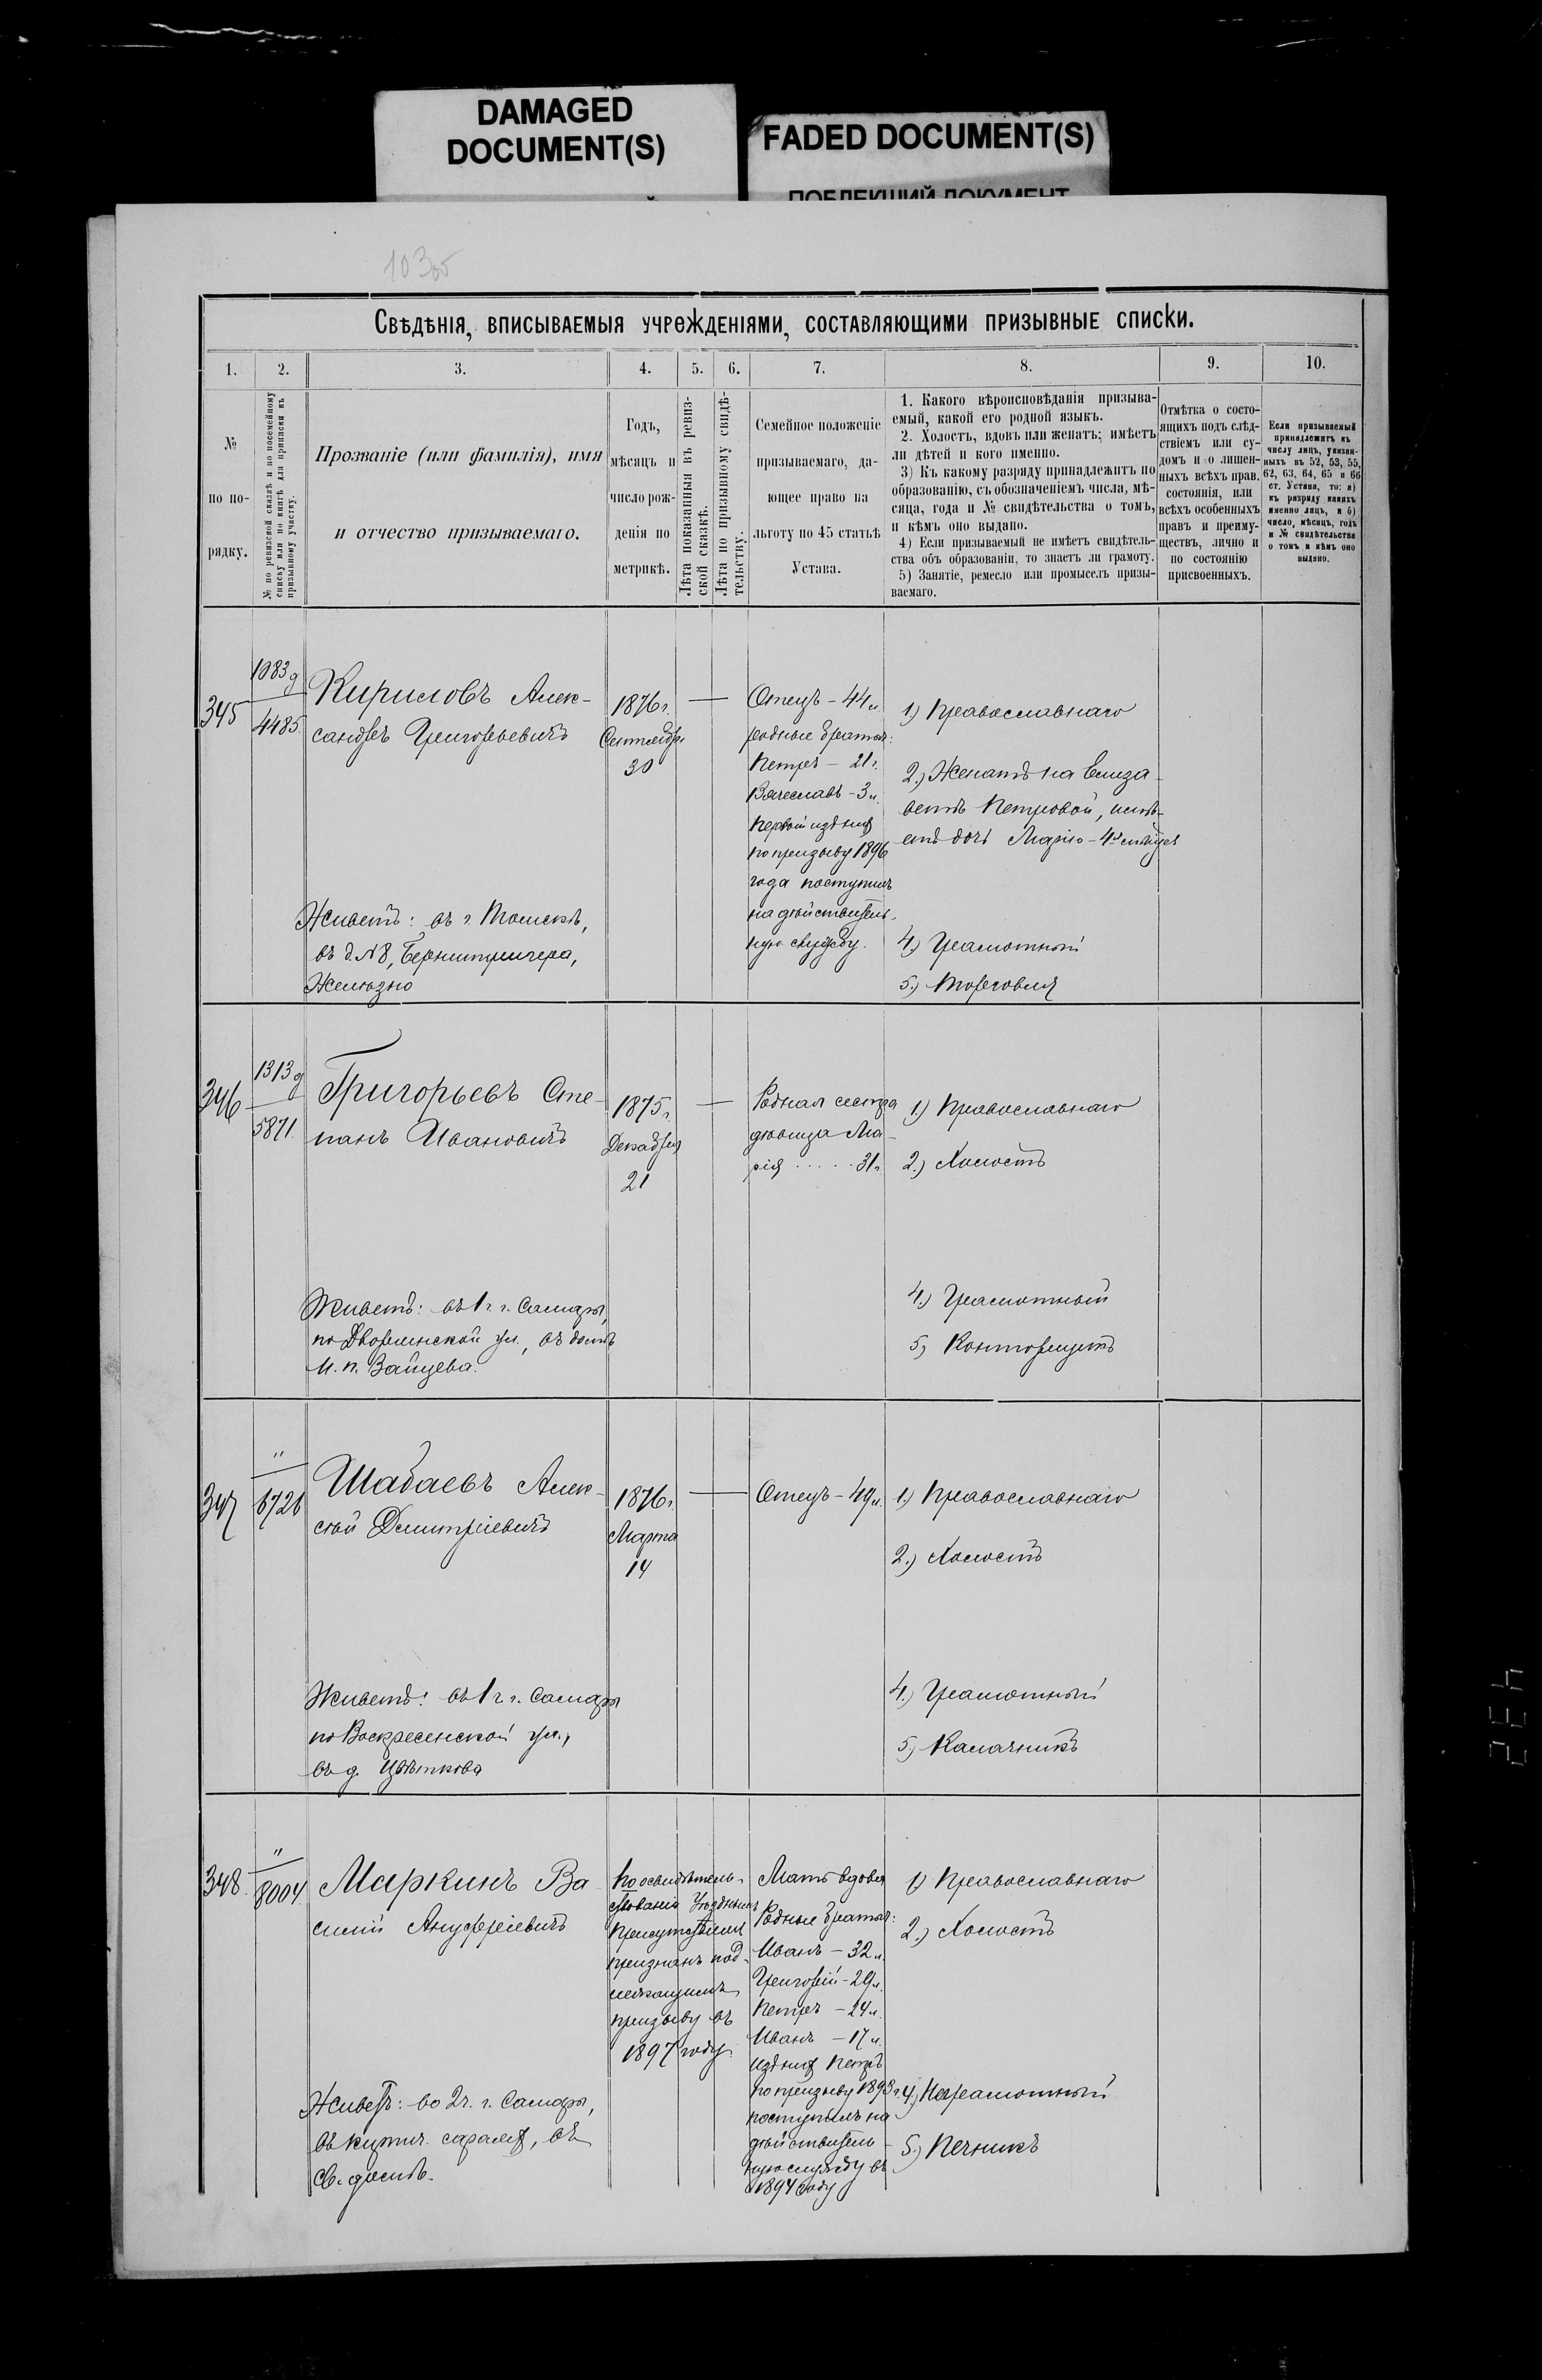 DAMAGED
DOCUMENT(S)
FADED DOCUMENT(S)
ПОБЛЕКШИЙ ДОКУМЕНТ
Свѣдѣнія, вписываемыя учрежденіями, составляющими призывные списки.
1.
2.
3.
4.
5.
6.
7.
8.
9.
10.
№
по по-
рядку.
№ по ревизской сказкѣ и по посемейному
списку или по книгѣ для приписки къ
призывному участку.
Прозваніе (или фамилія), имя
и отчество призываемаго.
Годъ,
мѣсяцъ и
число рож-
денія по
метрикѣ.
Лѣта показанныя въ ревиз-
ской сказкѣ.
Лѣта по призывному свидѣ-
тельству.
Семейное положеніе
призываемаго, да-
ющее право на
льготу по 45 статьѣ
Устава.
1. Какого вѣроисповѣданія призыва-
емый, какой его родной языкъ.
2. Холостъ, вдовъ или женатъ; имѣетъ
ли дѣтей и кого именно.
3) Къ какому разряду принадлежитъ по
образованію, съ обозначеніемъ числа, мѣ-
сяца, года и № свидѣтельства о томъ,
и кѣмъ оно выдано.
4) Если призываемый не имѣетъ свидѣтель-
ства объ образованіи, то знаетъ ли грамоту.
5) Занятіе, ремесло или промыселъ призы-
ваемаго.
Отмѣтка о состо-
ящихъ подъ слѣд-
ствіемъ или су-
домъ и о лишен-
ныхъ всѣхъ прав.
состоянія, или
всѣхъ особенныхъ
правъ и преиму-
ществъ, лично и
по состоянію
присвоенныхъ.
Если призываемый
принадлежитъ къ
числу лицъ, указан-
ныхъ въ 52, 53, 55,
62, 63, 64, 65 и 66
ст. Устава, то: а)
къ разряду какихъ
именно лицъ, и б)
число, мѣсяцъ, годъ
и № свидѣтельства
о томъ и кѣмъ оно
выдано.
345
1083 д
4485.
Кириловъ Алек-
сандръ Григорьевичъ
Живетъ: въ г. Томскѣ,
въ д. № 8,
1876 г.
Сентября
30
Отецъ – 44 л.
родные братья:
Петръ – 21 г.
Вячеславъ – 3 л.
Первый изъ нихъ
по призыву 1896
года поступилъ
на дѣйствитель-
ную службу.
1) Православнаго
2.) Женатъ на Елиза-
ветѣ Петровой, имѣ-
етъ дочь Марію – 4
4.) Грамотный
5.) Торговля
346
1313 д
5871.
Григорьевъ Сте-
панъ Ивановичъ
Живетъ: въ 1 ч. г. Самары,
по Дворянской ул., въ домѣ
И. П. Зайцева.
1875 г.
Декабря
21
Родная сестра
дѣвица Ма-
рія . . . . . 31 г.
1) Православнаго
2.) Холостъ
4.) Грамотный
5) Конторщикъ
347
"
6726
Шабаевъ Алек-
сѣй Димитріевичъ
Живетъ: въ 1 ч. г. Самары
по Воскресенской ул.,
въ д. Цвѣткова
1876 г.
Марта
14
Отецъ – 49 л.
1.) Православнаго
2.) Холостъ
4.) Грамотный
5) Калачникъ
348.
"
8004.
Маркинъ Ва-
силій Ануфріевичъ
Живетъ: во 2 ч. г. Самары,
въ кирпич. сараяхъ, въ
св. домѣ.
По освидѣтель-
ствованію Уѣзднымъ
Присутствіемъ
признанъ под-
лежащимъ
призыву въ
1897 году.
Мать вдова
Родные братья:
Иванъ – 32 л.
Григорій – 29 л.
Петръ – 24 л.
Иванъ – 17 л.
изъ нихъ Петръ
по призыву 1893 г.
поступилъ на
дѣйствитель-
ную службу въ
1894 году
1) Православнаго
2.) Холостъ
4.) Неграмотный
5.) Печникъ
432